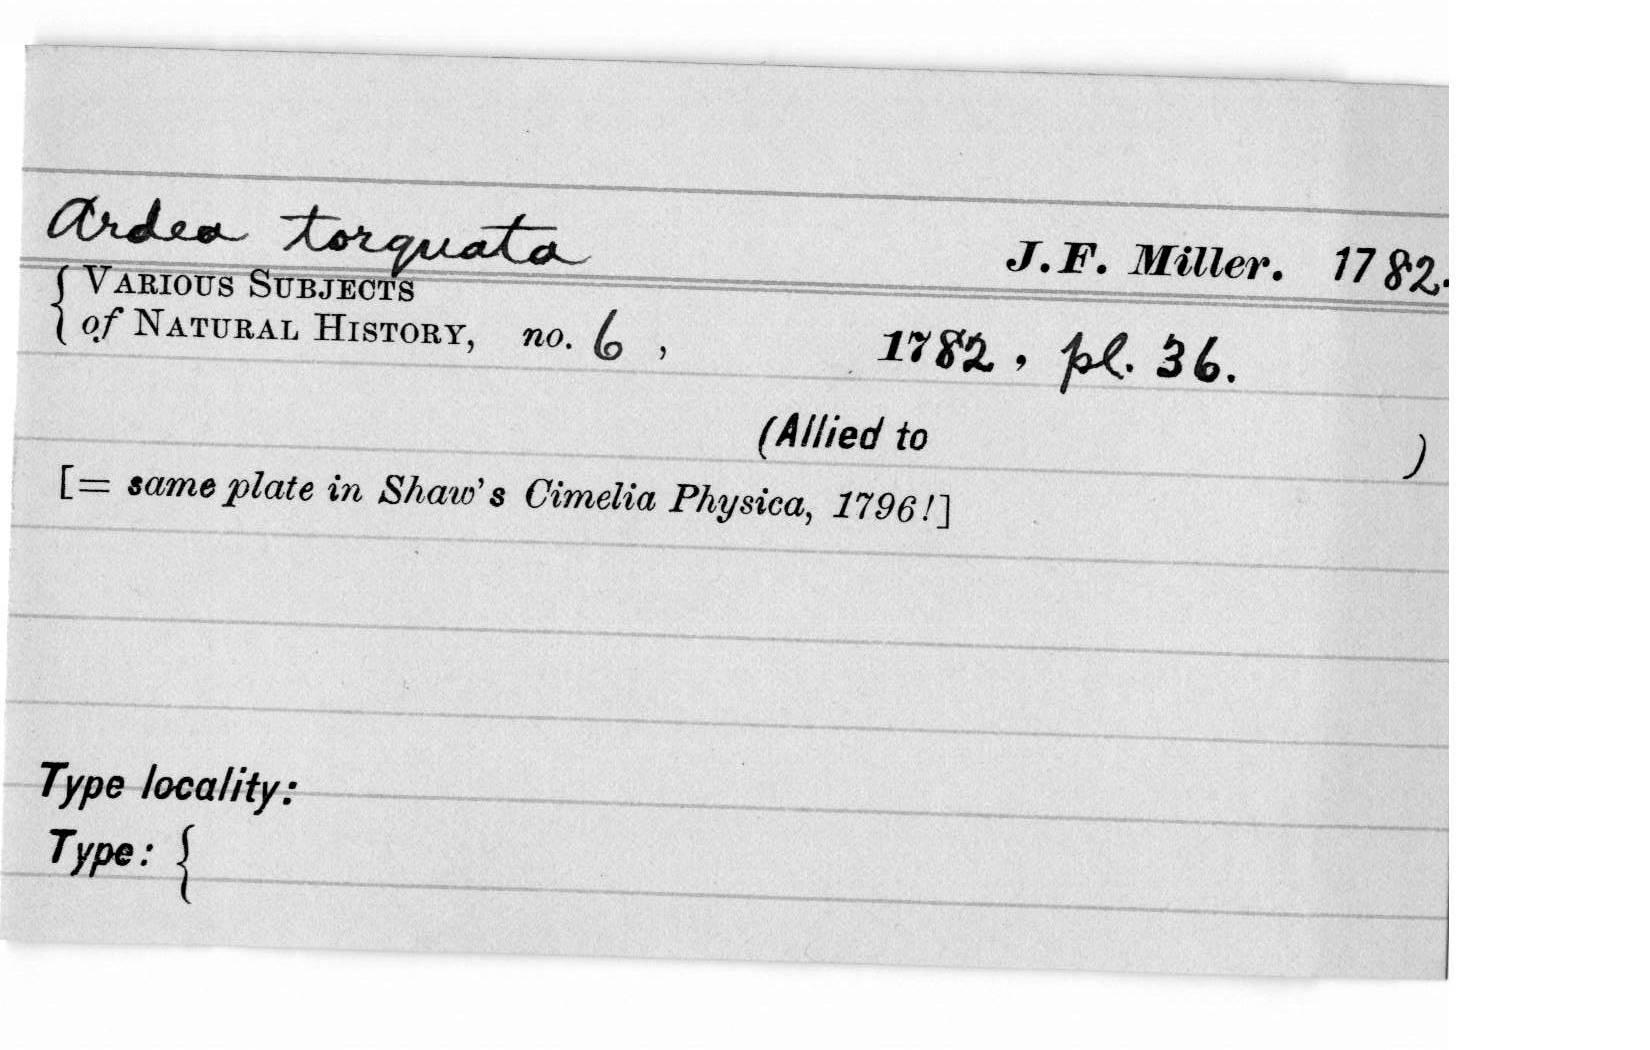 Ardea torquata J.F. Miller. 1782.
{ VARIOUS SUBJECTS
of NATURAL HISTORY, no. 6, 1782, pl. 36.
(Allied to )
[= same plate in Shaw's Cimelia Physica, 1796!]
Type locality:
Type: {